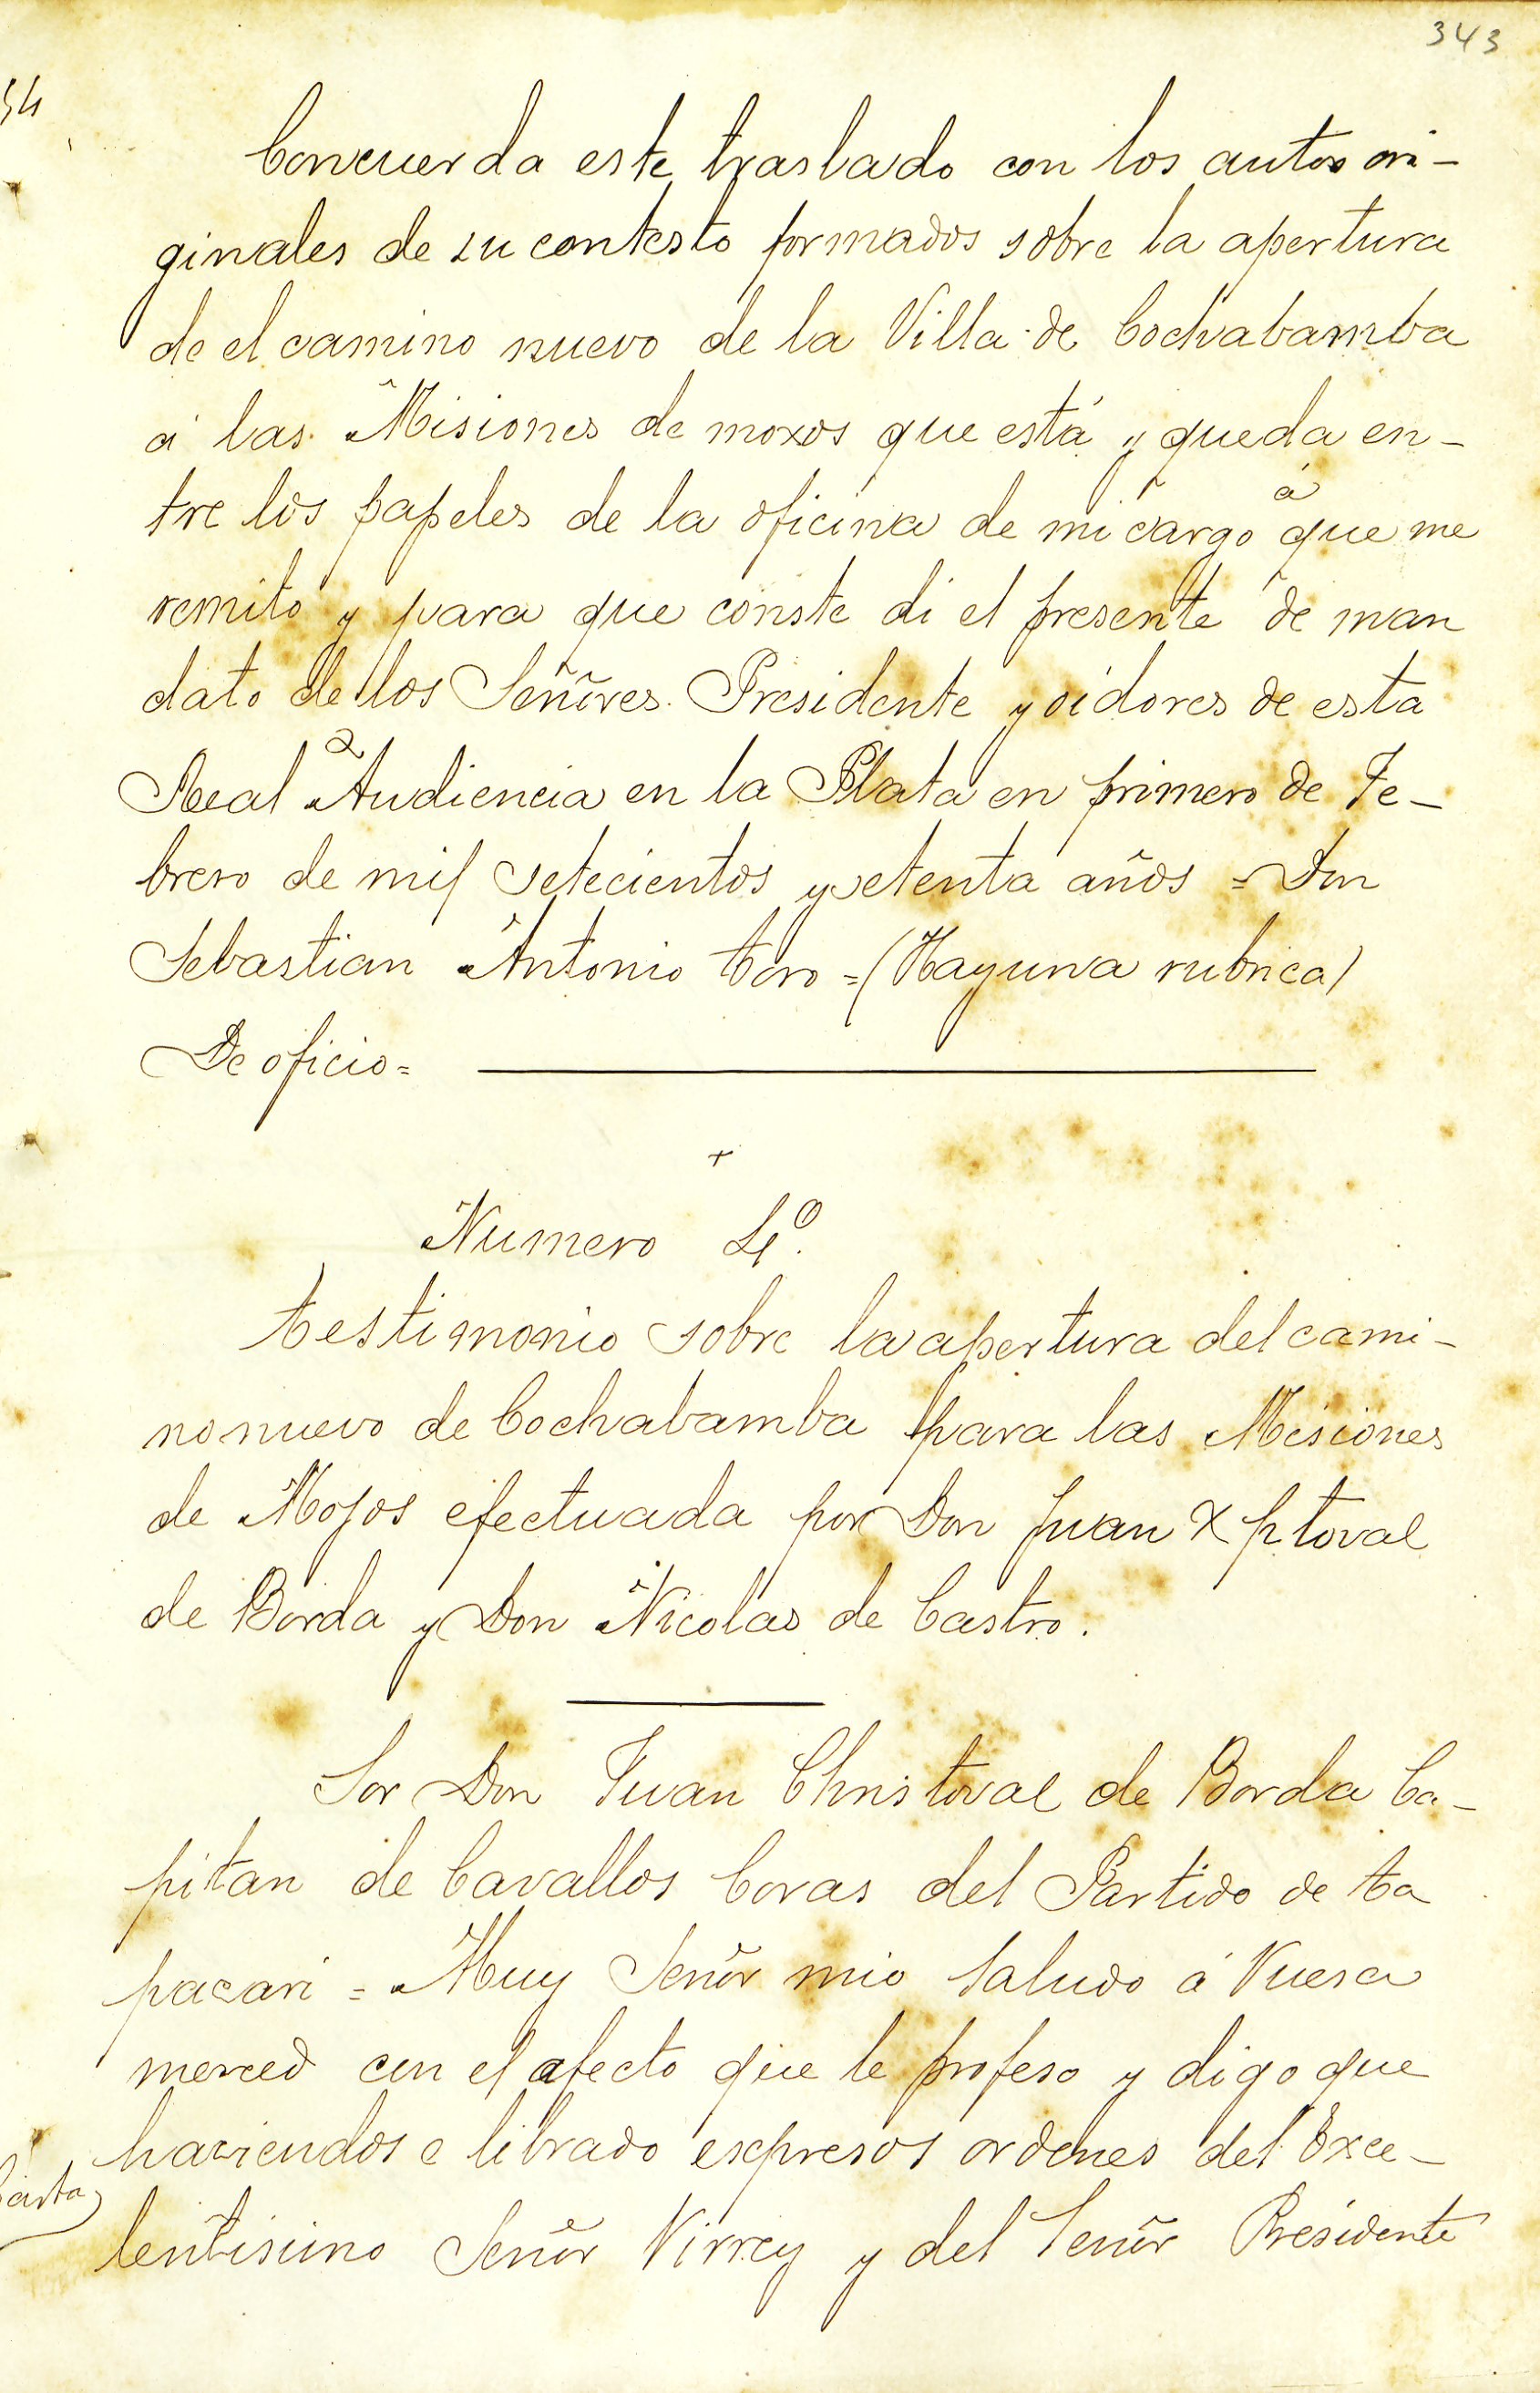 343
54
Concuerda este traslado con los autos ori-
ginales de su contesto formados sobre la apertura
de el camino nuevo de la Villa de Cochabamba
á las Misiones de moxos que está y queda en-
tre los papeles de la oficina de mi cargo á que me
remito y para que conste di el presente de man
dato de los Señores Presidente y oidores de esta
Real Audiencia en la Plata en primero de Fe-
brero de mil setecientos y setenta años = Don
Sebastian Antonio Toro = (Hay una rubrica)
De oficio =
+
Numero 4º.
Testimonio sobre la apertura del cami-
no nuevo de Cochabamba para las Misiones
de Mojos efectuada por Don Juan Xptoval
de Borda y Don Nicolas de Castro.
Sor Don Juan Christoval de Borda Ca-
pitan de Cavallos Coras del Partido de Ta
pacari = Muy Señor mio Saludo á Vuesa
merced con el afecto que le profeso y digo que
haviendose librado expresos ordenes del Exce-
Carta
lentisimo Señor Virrey y del Señor Presidente